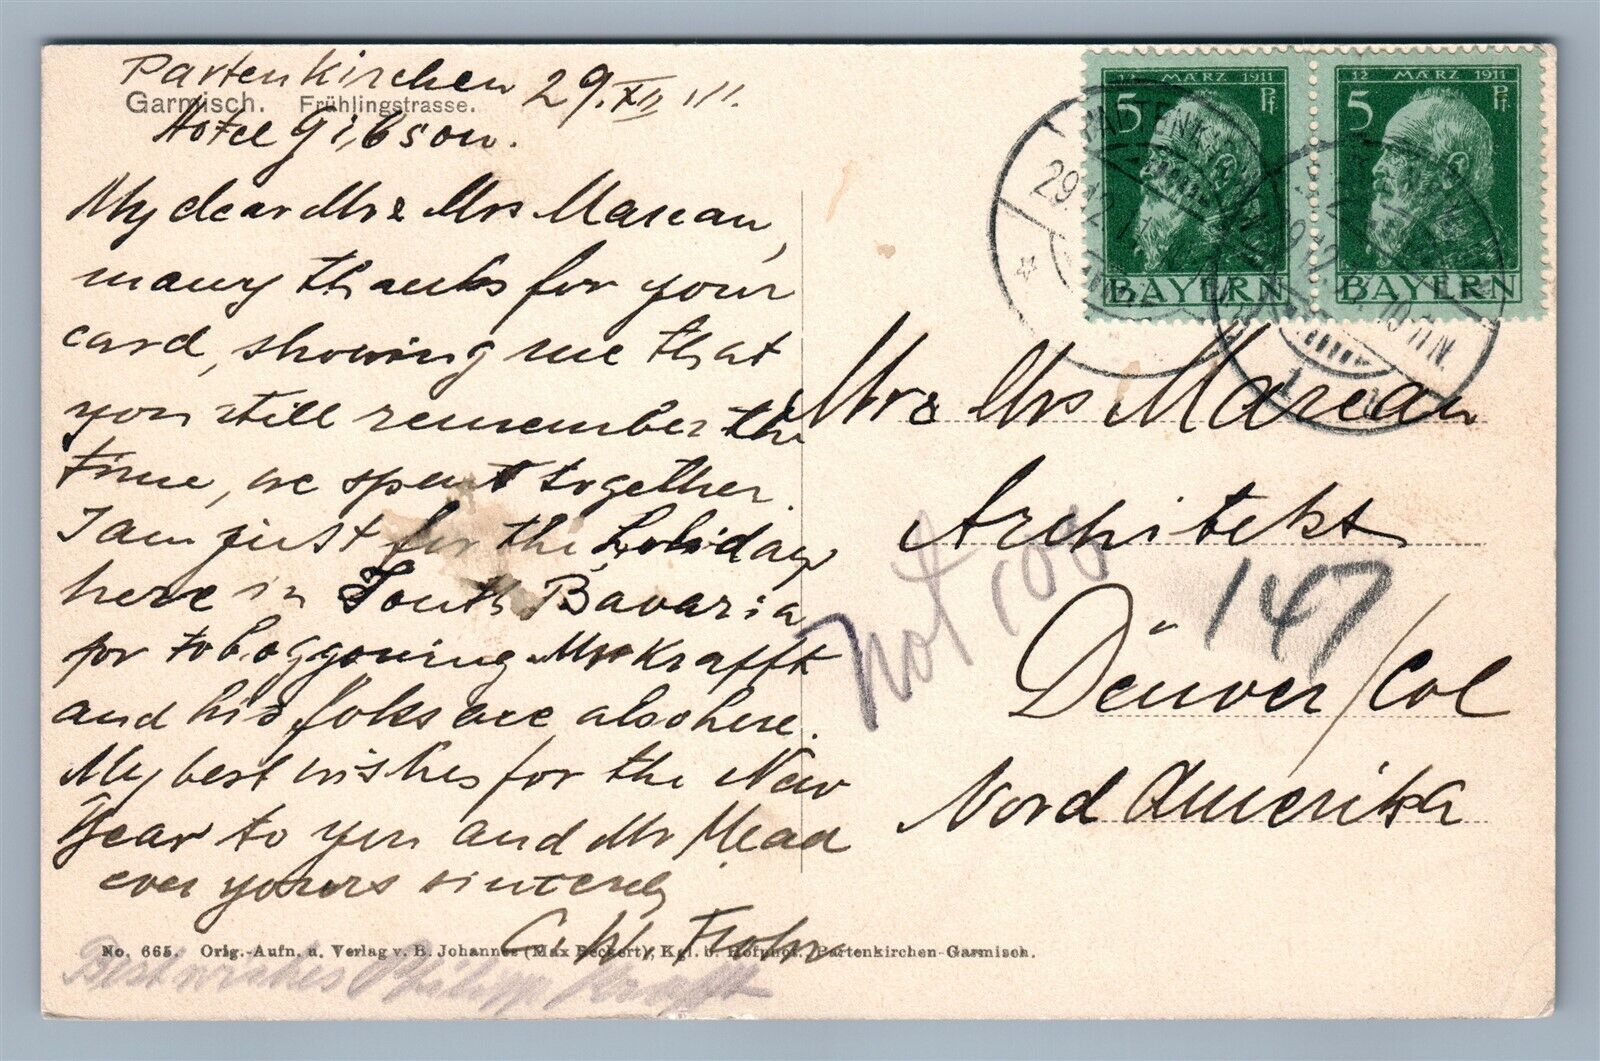 Partenkirchen 29. XII 11.
Garmisch. Frühlingstrasse.
Hotel Gibson.
My dear Mr & Mrs Marean,
many thanks for your
card, showing me that
you still remember the
time, we spent together.
I am just for the holidays
here in South Bavaria
for toboggoning Mr Krafft
and his folks are also here.
My best wishes for the New
Year to you and Mr Mead
ever yours sincerely
No. 665. Orig.-Aufn. u. Verlag v. B. Johannes (Max Beckert), Kgl. b. Hofphot. Partenkirchen-Garmisch.
Best wishes Philipp Krafft
12 MÄRZ 1911
5 Pf
BAYERN
12 MÄRZ 1911
5 Pf
BAYERN
Mr & Mrs Marean
Architekt
Denver / Col
Nord Amerika
147
not